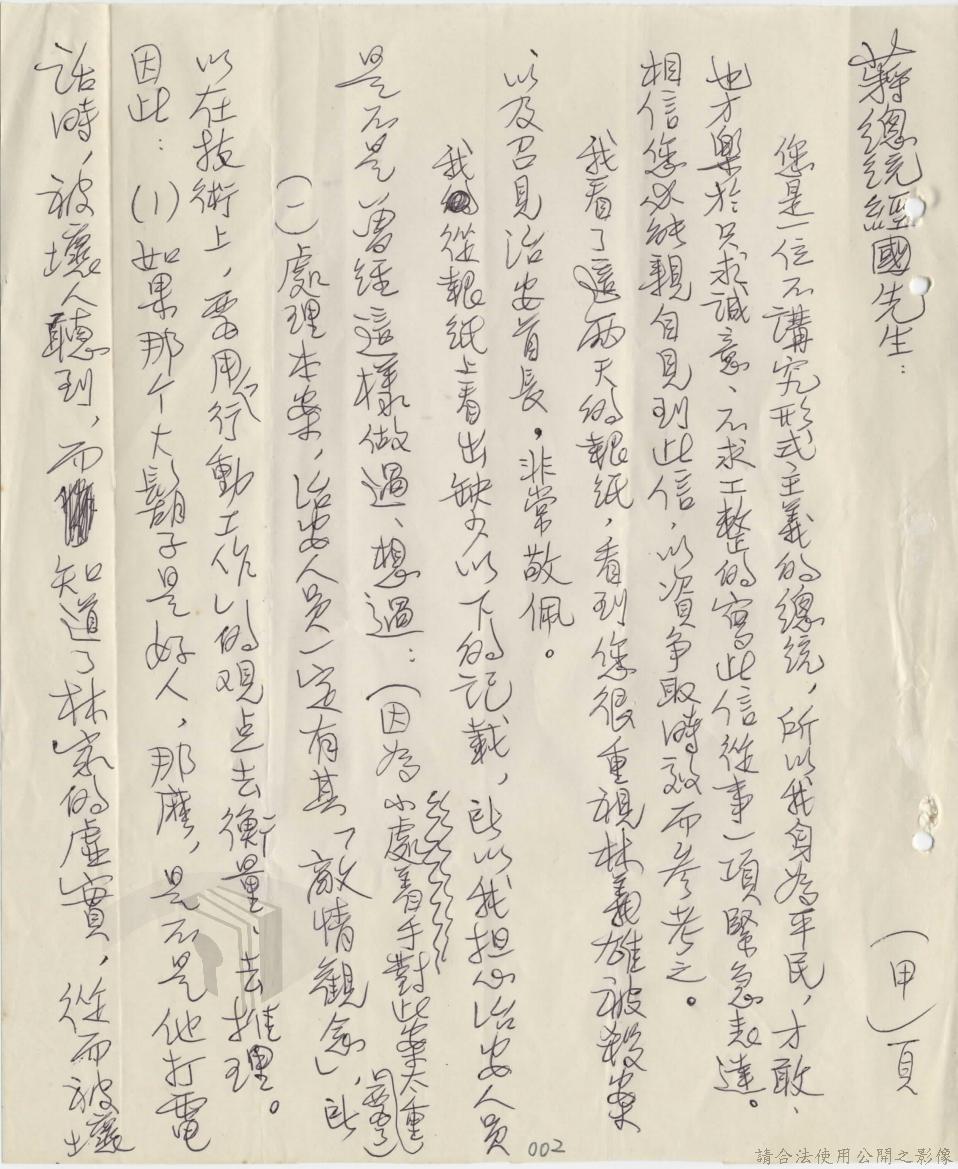 蔣總統經國先生：
（甲）頁
您是一位不講究形式主義的總統，所以我身為平民，才敢、
也才樂於只求誠意、不求工整的寫此信從事一項緊急表達。
相信您必能親自見到此信，以資爭取時效而參考之。
我看了這兩天的報紙，看到您很重視林義雄被殺案
以及召見治安首長，非常敬佩。
我從報紙上看出缺少以下的記載，所以我担心治安人員
是不是曾經這樣做過、想過：（因為小處着手對此案太重要了）
（一）處理本案，治安人員一定有其「敵情觀念」，所
以在技術上，要用「行動工作」的观点去衡量、去推理。
因此：(1)如果那个大鬍子是好人，那麼，是不是他打電
話時，被壞人聽到，而知道了林家的虛實，從而被壞
002
請合法使用公開之影像